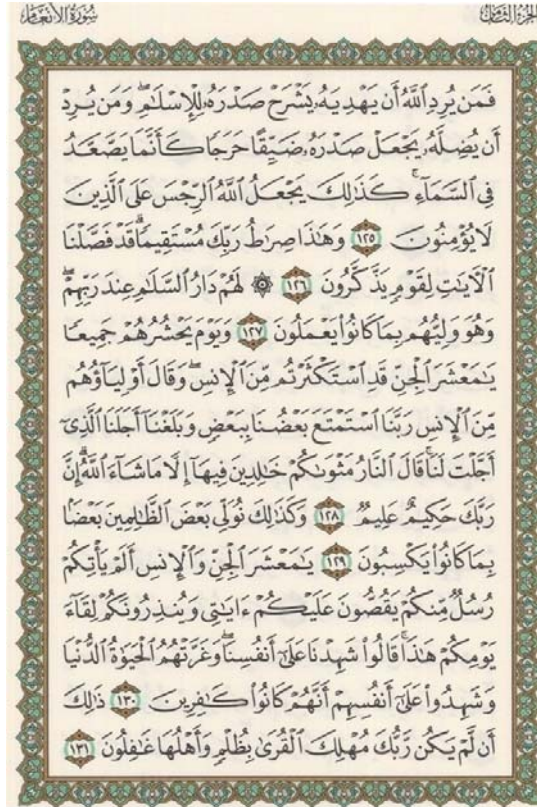 الجزء الثامن سورة الأنعام
فَمَن يُرِدِ ٱللَّهُ أَن يَهْدِيَهُۥ يَشْرَحْ صَدْرَهُۥ لِلْإِسْلَٰمِۖ وَمَن يُرِدْ
أَن يُضِلَّهُۥ يَجْعَلْ صَدْرَهُۥ ضَيِّقًا حَرَجًا كَأَنَّمَا يَصَّعَّدُ
فِى ٱلسَّمَآءِۚ كَذَٰلِكَ يَجْعَلُ ٱللَّهُ ٱلرِّجْسَ عَلَى ٱلَّذِينَ
لَا يُؤْمِنُونَ ١٢٥ وَهَٰذَا صِرَٰطُ رَبِّكَ مُسْتَقِيمًاۗ قَدْ فَصَّلْنَا
ٱلْـَٔايَٰتِ لِقَوْمٍ يَذَّكَّرُونَ ١٢٦ ۞ لَهُمْ دَارُ ٱلسَّلَٰمِ عِندَ رَبِّهِمْۖ
وَهُوَ وَلِيُّهُم بِمَا كَانُوا۟ يَعْمَلُونَ ١٢٧ وَيَوْمَ يَحْشُرُهُمْ جَمِيعًا
يَٰمَعْشَرَ ٱلْجِنِّ قَدِ ٱسْتَكْثَرْتُم مِّنَ ٱلْإِنسِۖ وَقَالَ أَوْلِيَآؤُهُم
مِّنَ ٱلْإِنسِ رَبَّنَا ٱسْتَمْتَعَ بَعْضُنَا بِبَعْضٍ وَبَلَغْنَآ أَجَلَنَا ٱلَّذِىٓ
أَجَّلْتَ لَنَاۚ قَالَ ٱلنَّارُ مَثْوَىٰكُمْ خَٰلِدِينَ فِيهَآ إِلَّا مَا شَآءَ ٱللَّهُۗ إِنَّ
رَبَّكَ حَكِيمٌ عَلِيمٌ ١٢٨ وَكَذَٰلِكَ نُوَلِّى بَعْضَ ٱلظَّٰلِمِينَ بَعْضًۢا
بِمَا كَانُوا۟ يَكْسِبُونَ ١٢٩ يَٰمَعْشَرَ ٱلْجِنِّ وَٱلْإِنسِ أَلَمْ يَأْتِكُمْ
رُسُلٌ مِّنكُمْ يَقُصُّونَ عَلَيْكُمْ ءَايَٰتِى وَيُنذِرُونَكُمْ لِقَآءَ
يَوْمِكُمْ هَٰذَاۚ قَالُوا۟ شَهِدْنَا عَلَىٰٓ أَنفُسِنَاۖ وَغَرَّتْهُمُ ٱلْحَيَوٰةُ ٱلدُّنْيَا
وَشَهِدُوا۟ عَلَىٰٓ أَنفُسِهِمْ أَنَّهُمْ كَانُوا۟ كَٰفِرِينَ ١٣٠ ذَٰلِكَ
أَن لَّمْ يَكُن رَّبُّكَ مُهْلِكَ ٱلْقُرَىٰ بِظُلْمٍ وَأَهْلُهَا غَٰفِلُونَ ١٣١